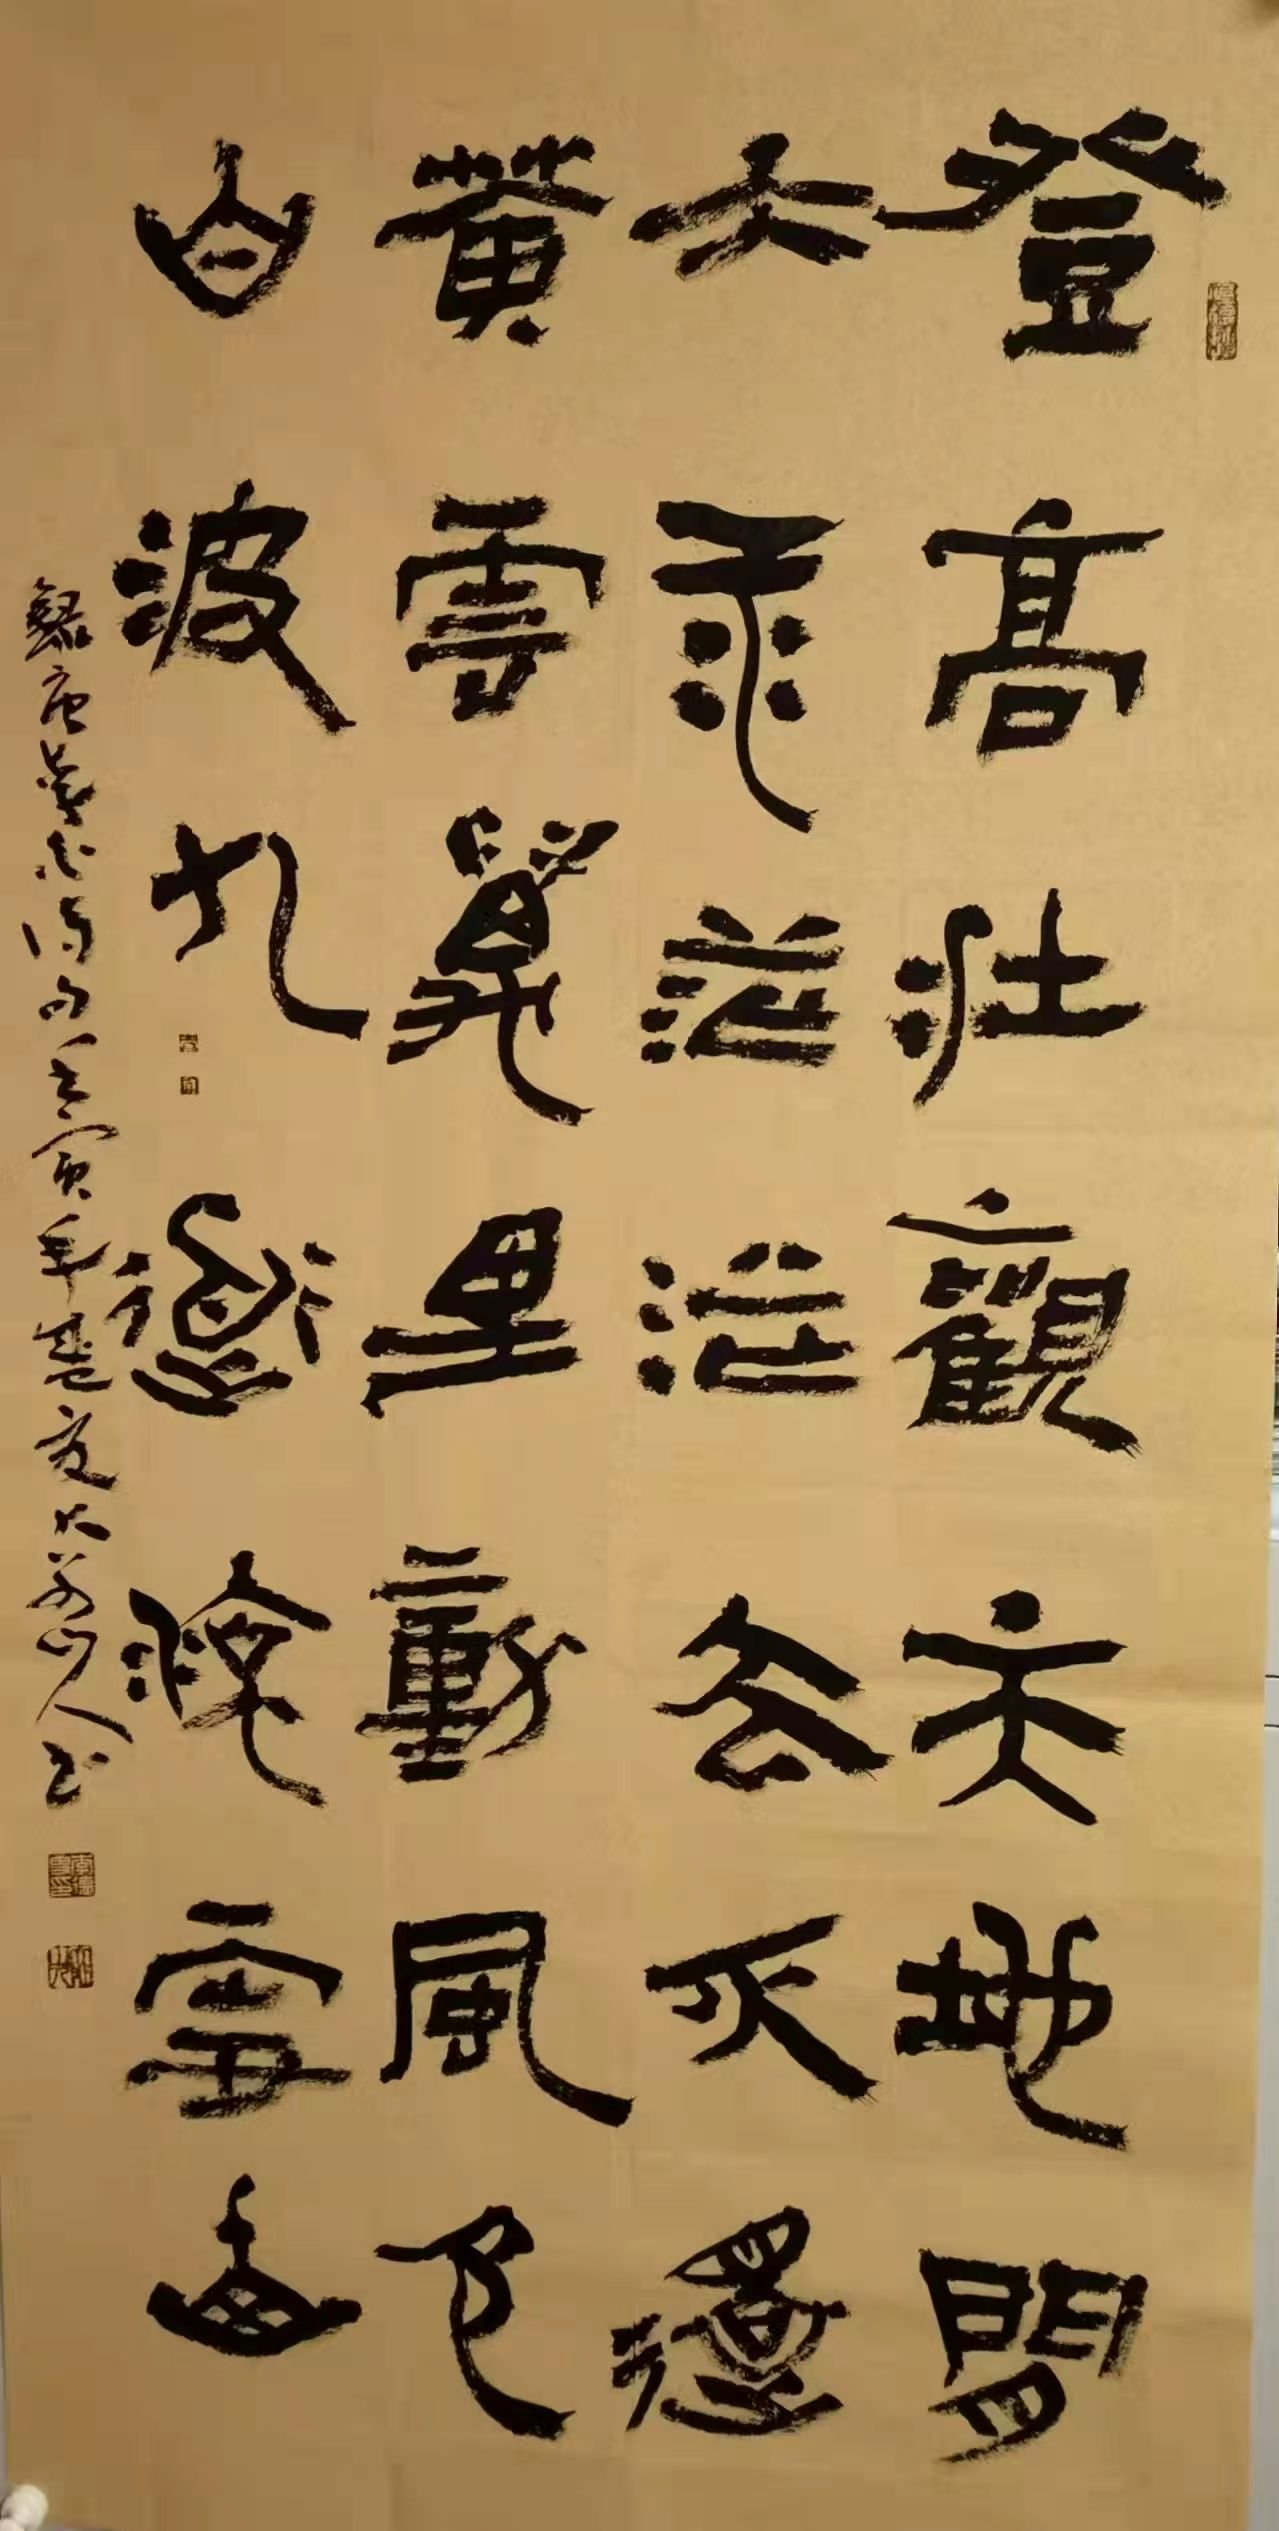 登高壯觀天地間
大江茫茫去不還
黃雲萬里動風色
白波九道流雪山
錄唐李白詩句壬寅年盛夏大為山人書